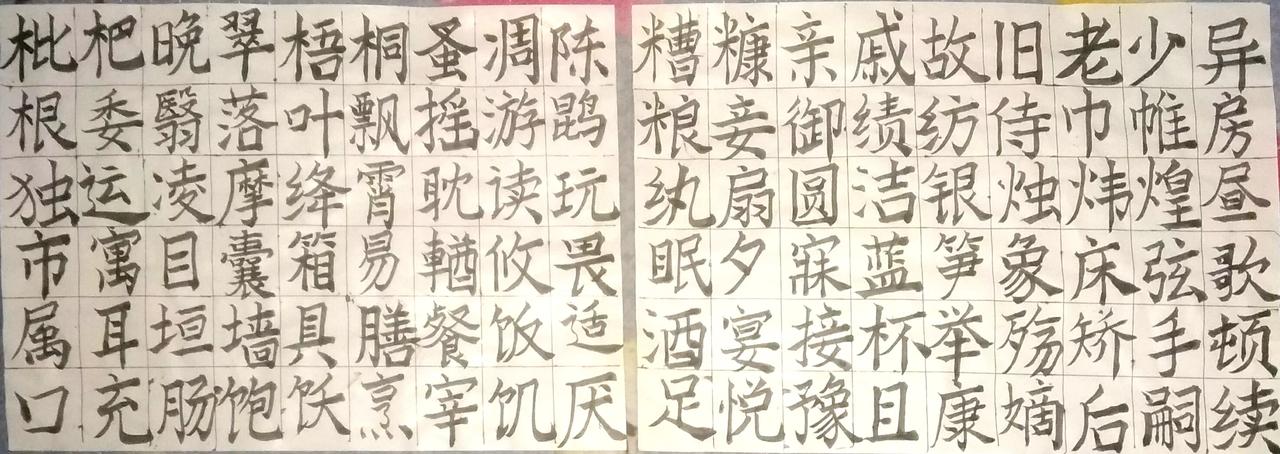 枇杷晚翠梧桐蚤凋陈
根委翳落叶飘摇游鹍
独运凌摩绛霄耽读玩
市寓目囊箱易輶攸畏
属耳垣墙具膳餐饭适
口充肠饱饫烹宰饥厌
糟糠亲戚故旧老少异
粮妾御绩纺侍巾帷房
纨扇圆洁银烛炜煌昼
眠夕寐蓝笋象床弦歌
酒宴接杯举殇矫手顿
足悦豫且康嫡后嗣续